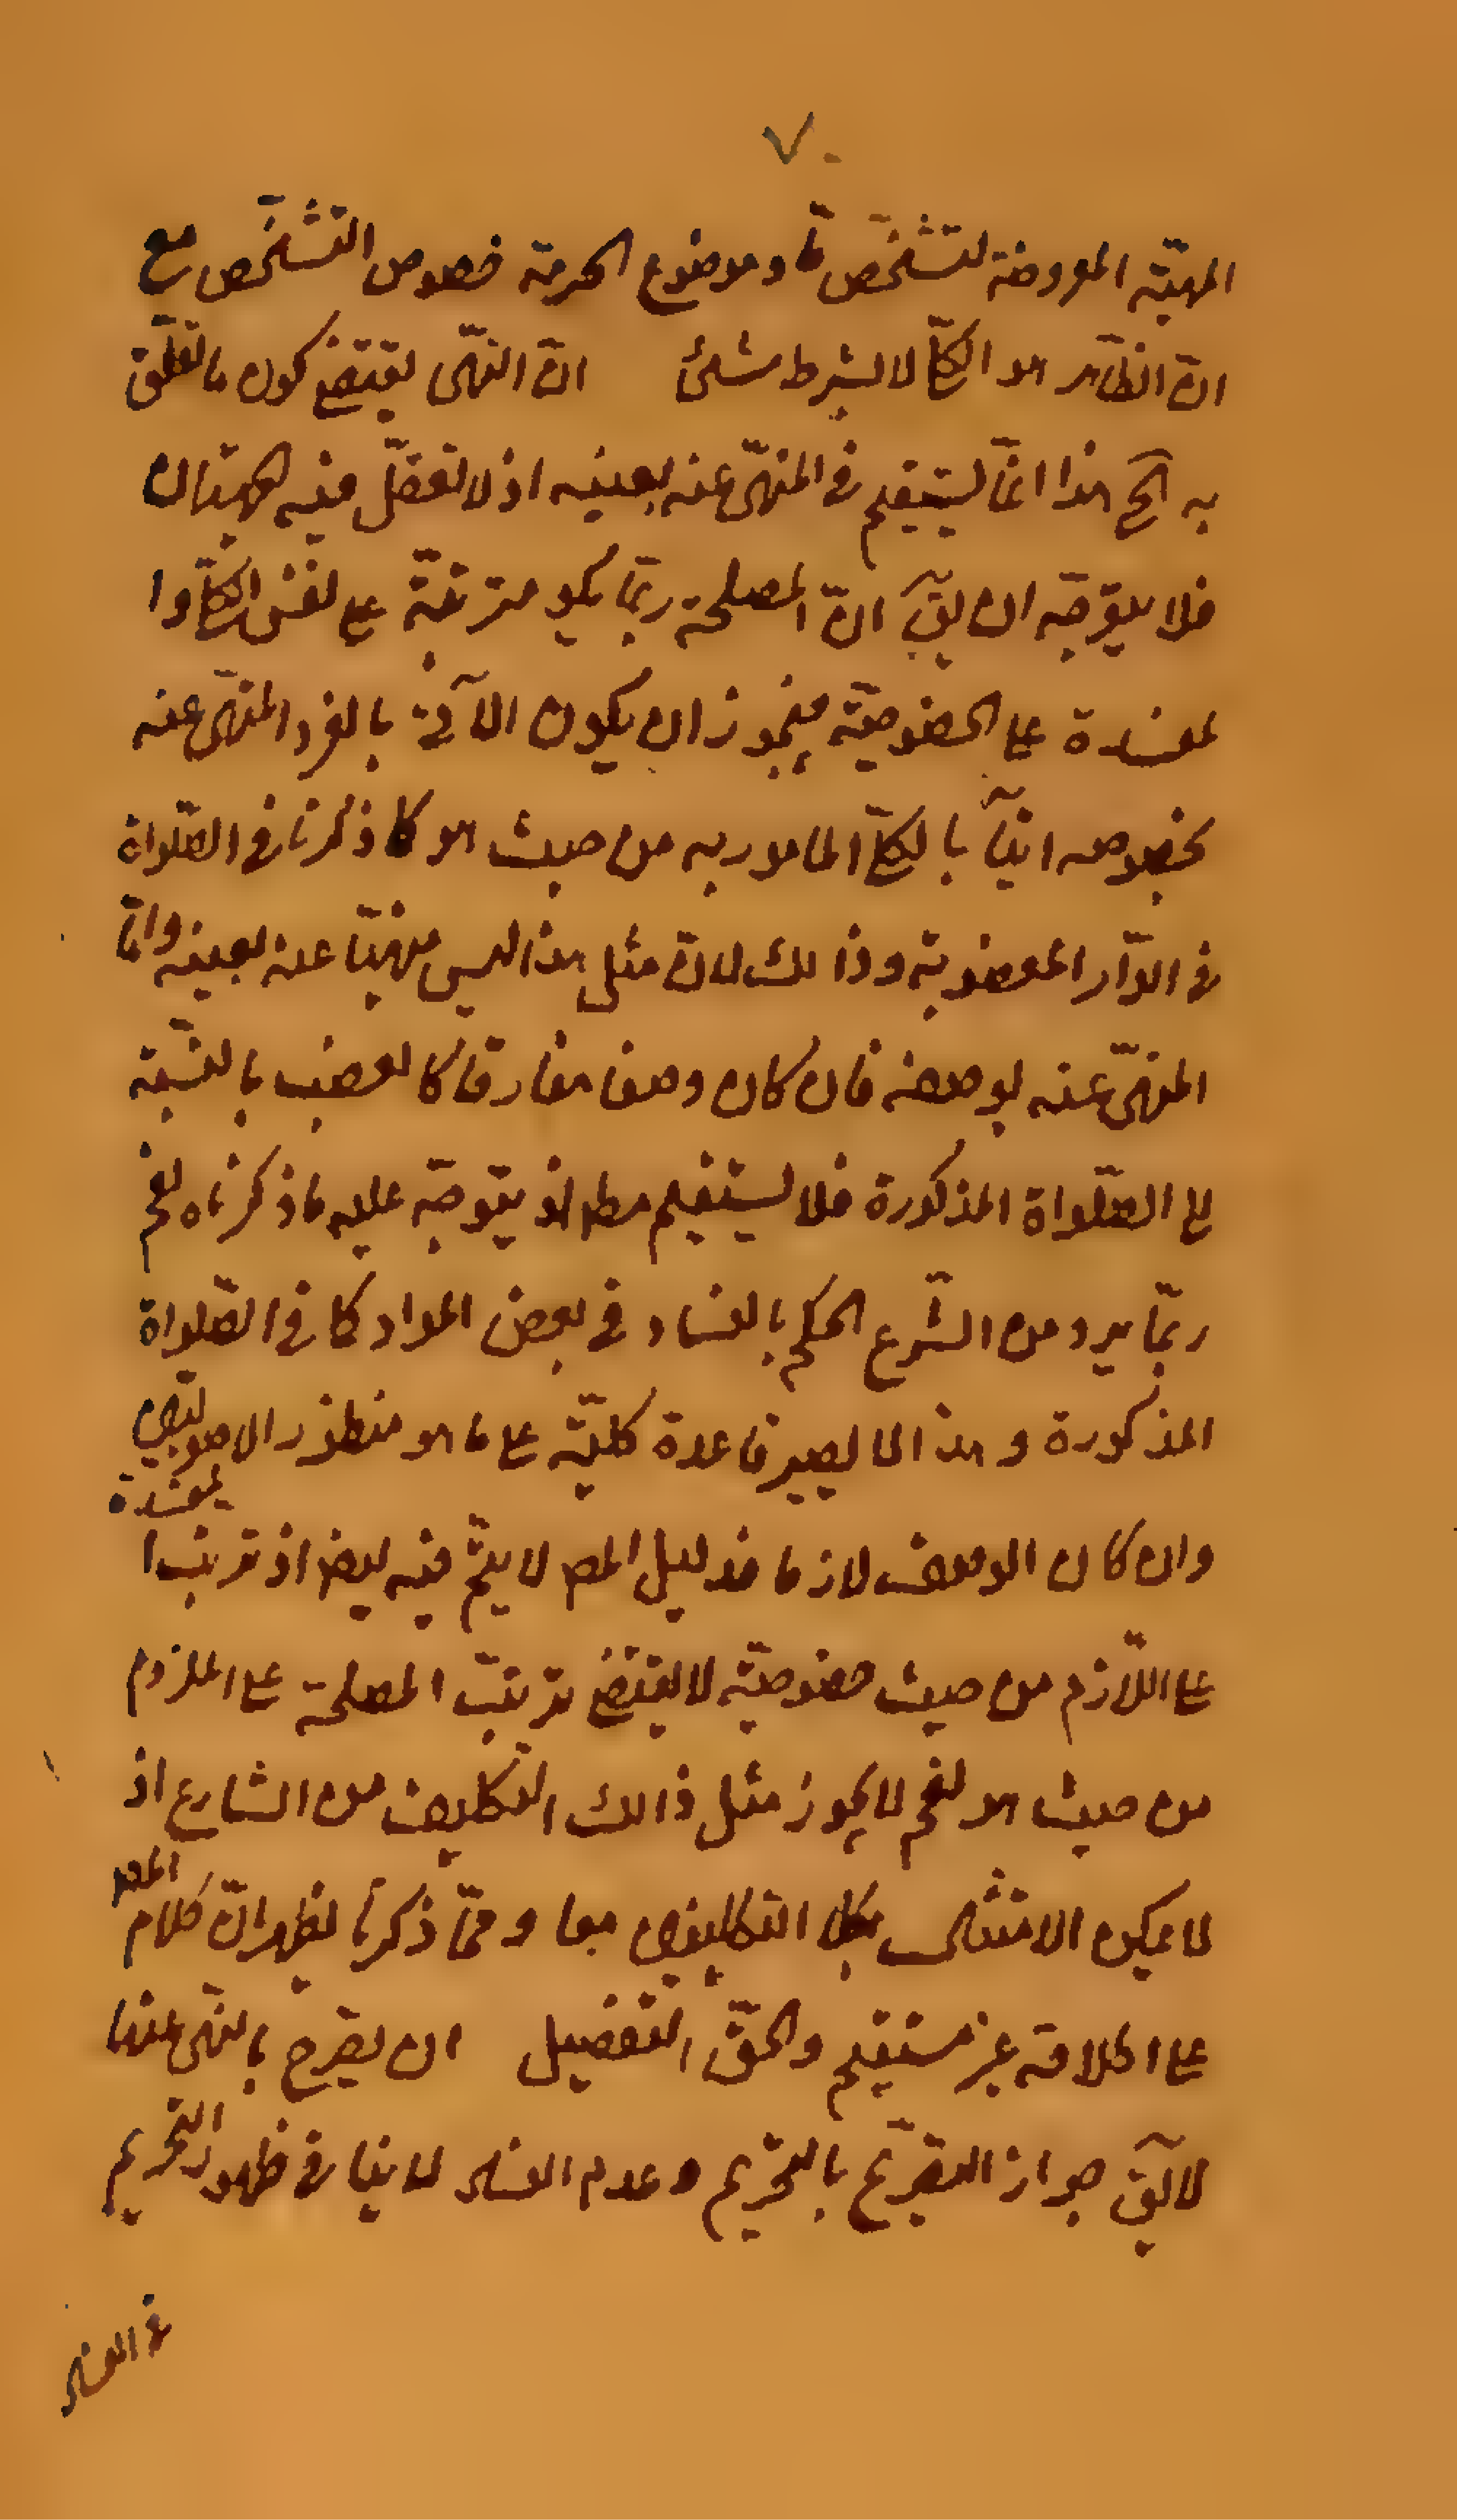 ٧٠
المهيّة المعروضة لتشخّص ما وموضوع الحرمة خصوص التشخّص مع
انّ الظاهر هو الكلّي لا بشرط شيئ انّ النهى يقتضي كون ما تعلّق
به الخ هذا انّما يستقيم في المنهىّ عنه بعينه اذ لا تعقل فيه جهتان
فلا يتوجّه ان يقّ انّ المصلحة ربّما يكو مترتّبة على نفس الكلّي وا
لمفسدة على الخصوصيّة فيجوز ان يكون الآتي بالفرد المنهىّ عنه
بخصوصه اتيا بالكلّي المامور به من حيث هو كما ذكرنا في الصّلواة
في الدّار المغصوبة وذالك لانّ مثل هذا ليس منهيّا عنه بعينه وامّا
المنهىّ عنه لوصفه فان كان وصفا مفارقا كالغصب بالنسّبة
الى الصّلواة المذكورة فلا يستقيم مطلقا اذ يتوجّه عليه ما ذكرناه نعم
ربّما يرد من الشّرع الحكم بالفساد في بعض المواد كما في الصّلواة
المذكورة وهذا لا يصير قاعدة كليّة على ما هو منظور الاصوليّين
وان كان الوصف لازما فدليل المص لا يتمّ فيه ايضا اذ ترتب المفسدة
على اللّازم من حيث خصوصيّة لا يقتضي ترتّب المصلحة على الملزوم
من حيث هو نعم لا يجوز مثل ذالك التكليف من الشارع اذ
لا يمكن الامتثال بكلا التكليفين معا وممّا ذكرنا يظهر انّ كلام المص
على اطلاقه غير مستقيم والحقّ التفصيل ان يصّرح بالنهى عنها
لا يقّ جواز التصّريح بالتحّريم وعدم الفساد لا ينافي ظهور التحّريم
في الفساد